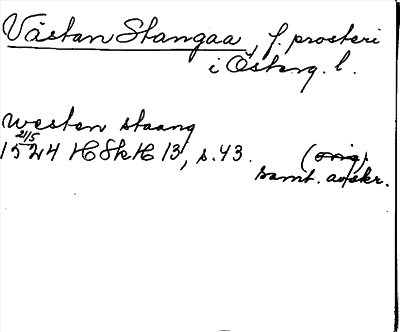 Västan Stangaa, f. prosteri
i Österg. l.
westan staang
21/5
1524 HSkH 13, s. 43. (orig).
samt. avskr.